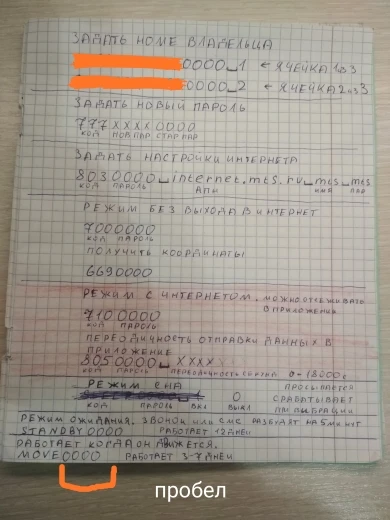 ЗАДАТЬ НОМЕ ВЛАДЕЛЬЦА
0000␣1 ← ЯЧЕЙКА 1из3
0000␣2 ← ЯЧЕЙКА 2из3
ЗАДАТЬ НОВЫЙ ПАРОЛЬ
777XXXX0000
КОД НОВ ПАР СТАР ПАР
ЗАДАТЬ НАСТРОЙКИ ИНТЕРНЕТА
8030000␣internet.mts.ru␣mts␣mts
КОД ПАРОЛЬ АПН ИМЯ ПАР
РЕЖИМ БЕЗ ВЫХОДА В ИНТЕРНЕТ
7000000
КОД ПАРОЛЬ
ПОЛУЧИТЬ КООРДИНАТЫ
6690000
РЕЖИМ С ИНТЕРНЕТОМ. МОЖНО ОТСЛЕЖИВАТЬ
В ПРИЛОЖЕНИИ
7100000
КОД ПАРОЛЬ
ПЕРЕОДИЧНОСТЬ ОТПРАВКИ ДАННЫХ В
ПРИЛОЖЕНИЕ
8050000␣XXXX
КОД ПАРОЛЬ ПЕРЕОДИЧНОСТЬ 0-18000с
РЕЖИМ СНА ПРОСЫПАЕТСЯ
0 СРАБАТЫВАЕТ
КОД ПАРОЛЬ ВКЛ ВЫКЛ ПРИ ВИБРАЦИИ
РЕЖИМ ОЖИДАНИЯ. ЗВОНОК ИЛИ СМС РАЗБУДЯТ НА 5 МИНУТ
STANDAY0000 РАБОТАЕТ 12 ДНЕЙ
РАБОТАЕТ КОГДА ОН ДВИЖЕТСЯ.
MOVE0000 РАБОТАЕТ 3-7 ДНЕЙ
пробел